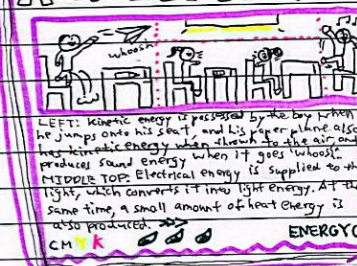 whoosh
LEFT: Kinetic energy is possessed by the boy when
he jumps onto his seat, and his paper plane also
has kinetic energy when thrown to the air and
produces sound energy when it goes 'whoosh'.
MIDDLE TOP: Electrical energy is supplied to th
light, which converts it into light energy. At th
same time, a small amount of heat energy is
also produced.
CMYK
ENERGYC